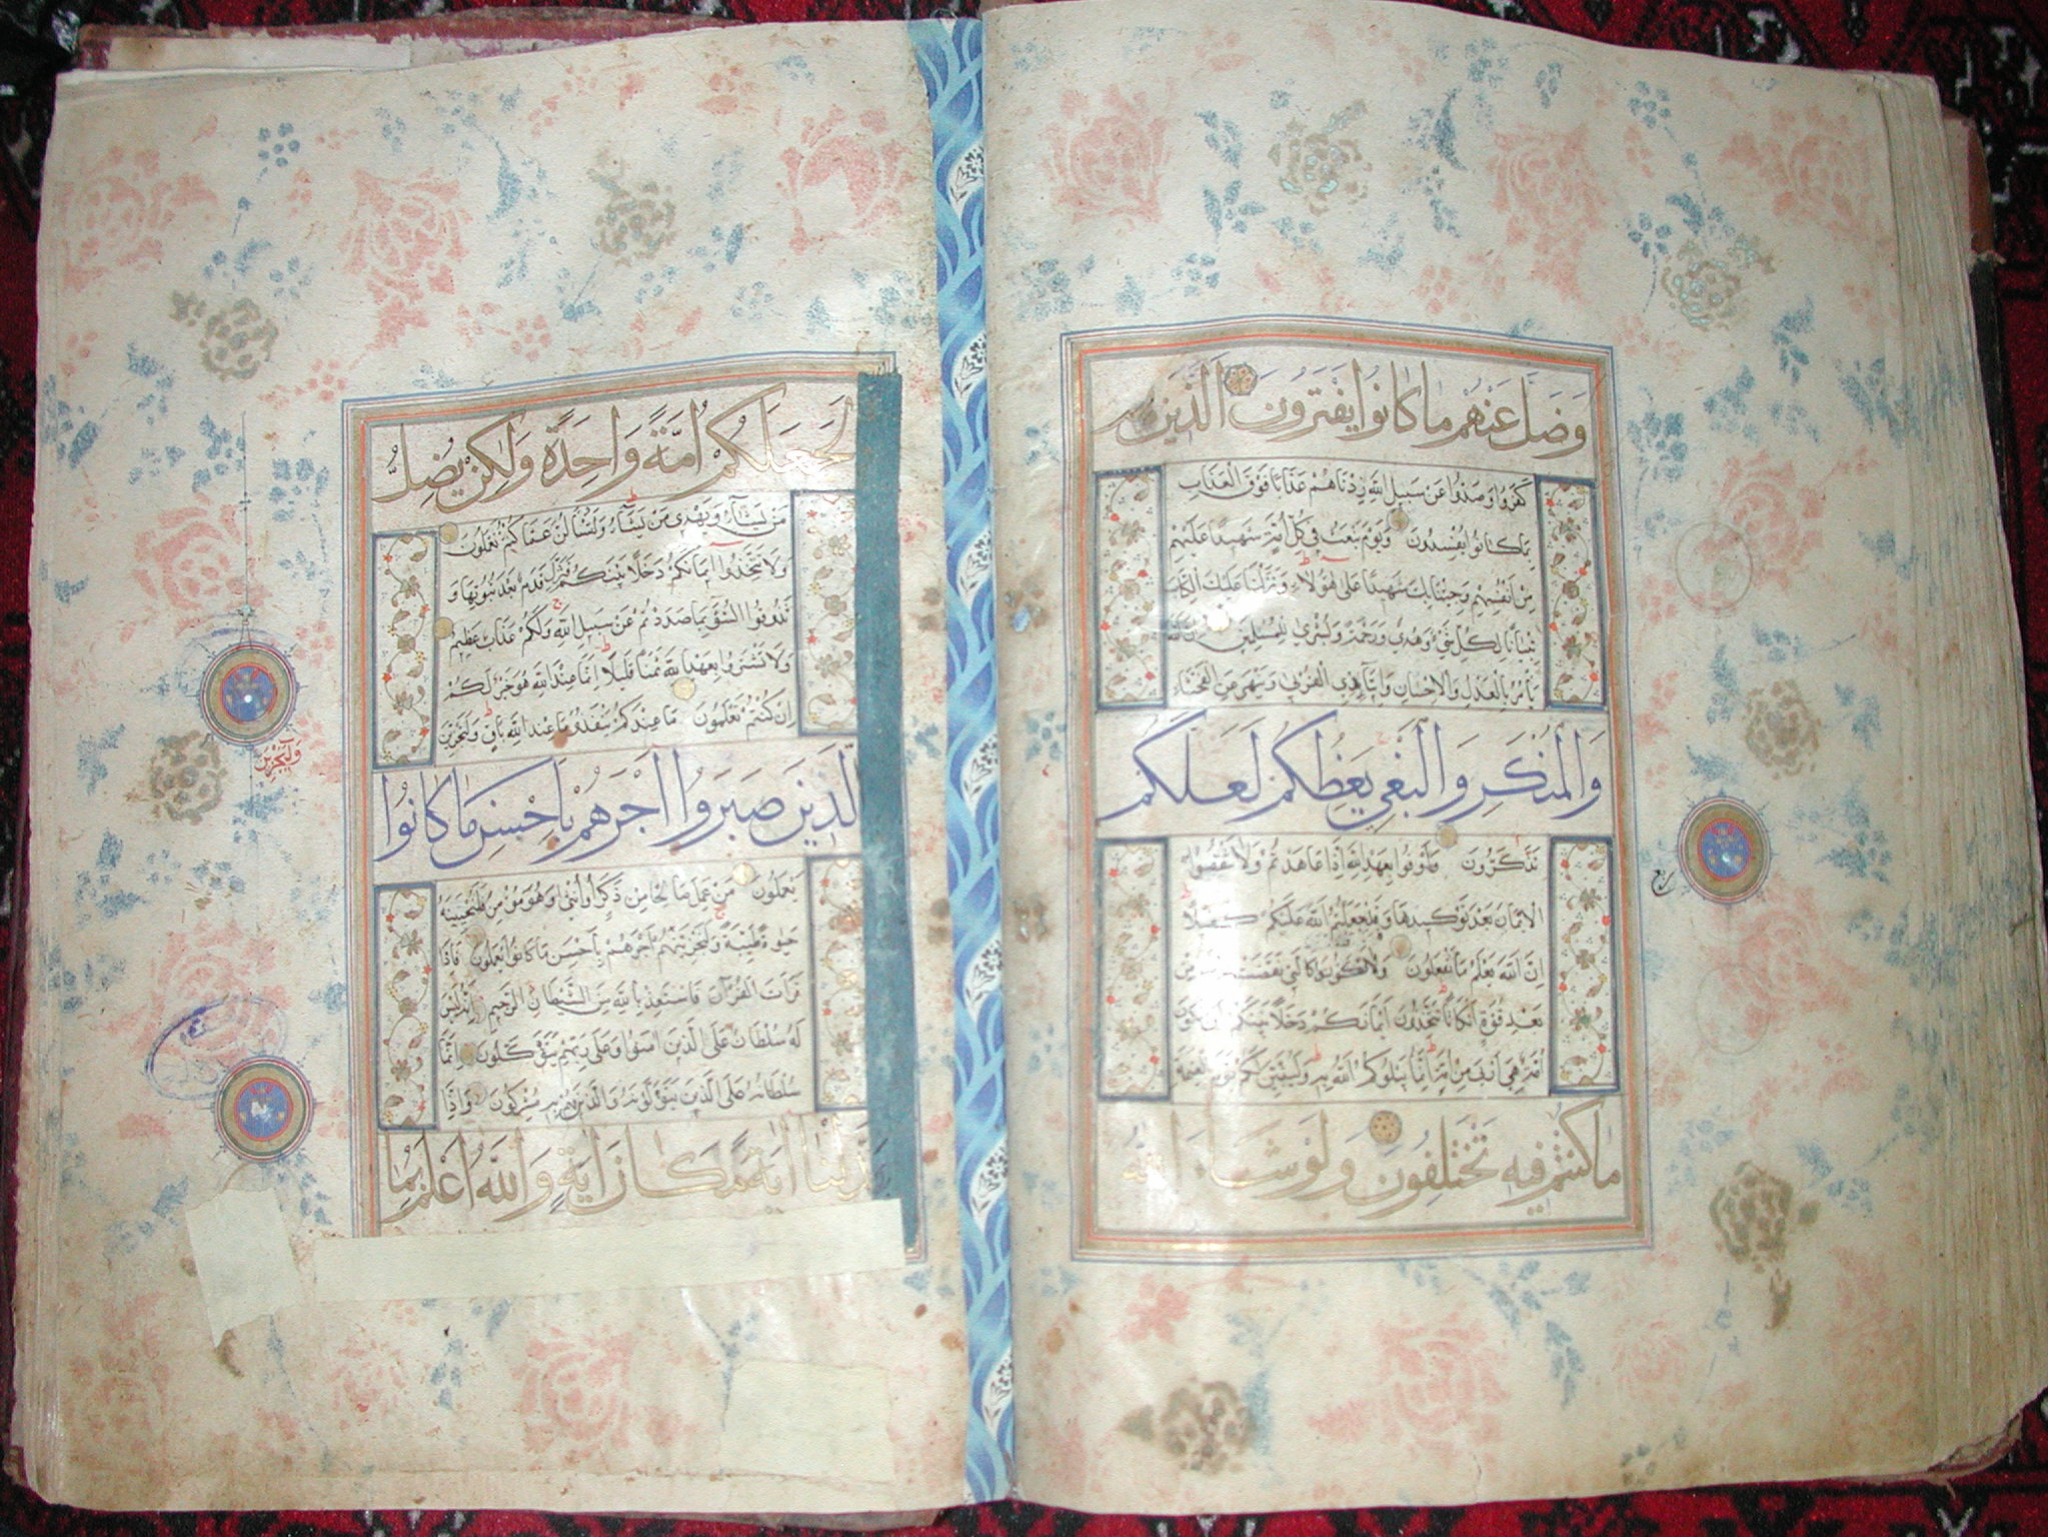 وَضَلَّ عَنْهُم مَا كَانُوا يَفْتَرُونَ الَّذِينَ
كَفَرُوا وَصَدُّوا عَنْ سَبِيلِ اللَّهِ زِدْنَاهُمْ عَذَابًا فَوْقَ الْعَذَابِ
بِمَا كَانُوا يُفْسِدُونَ وَيَوْمَ نَبْعَثُ فِي كُلِّ أُمَّةٍ شَهِيدًا عَلَيْهِمْ
مِنْ أَنْفُسِهِمْ وَجِئْنَا بِكَ شَهِيدًا عَلَى هَؤُلَاءِ وَنَزَّلْنَا عَلَيْكَ الْكِتَابَ
تِبْيَانًا لِكُلِّ شَيْءٍ وَهُدًى وَرَحْمَةً وَبُشْرَى لِلْمُسْلِمِينَ
يَأْمُرُ بِالْعَدْلِ وَالْإِحْسَانِ وَإِيتَاءِ ذِي الْقُرْبَى وَيَنْهَى عَنِ الْفَحْشَاءِ
وَالْمُنْكَرِ وَالْبَغْيِ يَعِظُكُمْ لَعَلَّكُمْ
تَذَكَّرُونَ وَأَوْفُوا بِعَهْدِ اللَّهِ إِذَا عَاهَدْتُمْ وَلَا تَنْقُضُوا
الْأَيْمَانَ بَعْدَ تَوْكِيدِهَا وَقَدْ جَعَلْتُمُ اللَّهَ عَلَيْكُمْ كَفِيلًا
إِنَّ اللَّهَ يَعْلَمُ مَا تَفْعَلُونَ وَلَا تَكُونُوا كَالَّتِي نَقَضَتْ
بَعْدِ قُوَّةٍ أَنْكَاثًا تَتَّخِذُونَ أَيْمَانَكُمْ دَخَلًا بَيْنَكُمْ أَنْ تَكُونَ
أُمَّةٌ هِيَ أَرْبَى مِنْ أُمَّةٍ إِنَّمَا يَبْلُوكُمُ اللَّهُ بِهِ وَلَيُبَيِّنَنَّ لَكُمْ يَوْمَ الْقِيَامَةِ
مَا كُنْتُمْ فِيهِ تَخْتَلِفُونَ وَلَوْ شَاءَ اللَّهُ
ربع
لَجَعَلَكُمْ أُمَّةً وَاحِدَةً وَلَكِنْ يُضِلُّ
مَنْ يَشَاءُ وَيَهْدِي مَنْ يَشَاءُ وَلَتُسْأَلُنَّ عَمَّا كُنْتُمْ تَعْمَلُونَ
وَلَا تَتَّخِذُوا أَيْمَانَكُمْ دَخَلًا بَيْنَكُمْ فَتَزِلَّ قَدَمٌ بَعْدَ ثُبُوتِهَا وَ
تَذُوقُوا السُّوءَ بِمَا صَدَدْتُمْ عَنْ سَبِيلِ اللَّهِ وَلَكُمْ عَذَابٌ عَظِيمٌ
وَلَا تَشْتَرُوا بِعَهْدِ اللَّهِ ثَمَنًا قَلِيلًا إِنَّمَا عِنْدَ اللَّهِ هُوَ خَيْرٌ لَكُمْ
إِنْ كُنْتُمْ تَعْلَمُونَ مَا عِنْدَكُمْ يَنْفَدُ وَمَا عِنْدَ اللَّهِ بَاقٍ وَلَنَجْزِيَنَّ
الَّذِينَ صَبَرُوا أَجْرَهُمْ بِأَحْسَنِ مَا كَانُوا
يَعْمَلُونَ مَنْ عَمِلَ صَالِحًا مِنْ ذَكَرٍ أَوْ أُنْثَى وَهُوَ مُؤْمِنٌ فَلَنُحْيِيَنَّهُ
حَيَوةً طَيِّبَةً وَلَنَجْزِيَنَّهُمْ أَجْرَهُمْ بِأَحْسَنِ مَا كَانُوا يَعْمَلُونَ فَإِذَا
قَرَأْتَ الْقُرْآنَ فَاسْتَعِذْ بِاللَّهِ مِنَ الشَّيْطَانِ الرَّجِيمِ إِنَّهُ لَيْسَ
لَهُ سُلْطَانٌ عَلَى الَّذِينَ آمَنُوا وَعَلَى رَبِّهِمْ يَتَوَكَّلُونَ إِنَّمَا
سُلْطَانُهُ عَلَى الَّذِينَ يَتَوَلَّوْنَهُ وَالَّذِينَ هُمْ بِهِ مُشْرِكُونَ وَإِذَا
بَدَّلْنَا آيَةً مَكَانَ آيَةٍ وَاللَّهُ أَعْلَمُ بِمَا